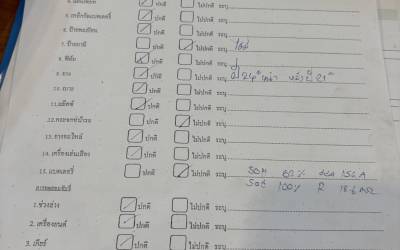 ปกติ ไม่ปกติ ระบุ
5. เหล็กรัดแบตเตอรี่ ปกติ ไม่ปกติ ระบุ
6. ป้ายทะเบียน ปกติ ไม่ปกติ ระบุ
7. ป้ายภาษี ปกติ ไม่ปกติ ระบุ
8. ฟิล์ม ปกติ ไม่ปกติ ระบุ
9. ยาง ปกติ ไม่ปกติ ระบุ
10. เบาะ ปกติ ไม่ปกติ ระบุ
11. แม็กซ์ ปกติ ไม่ปกติ ระบุ
ปกติ ไม่ปกติ ระบุ
13. ยางอะไหล่ ปกติ ไม่ปกติ ระบุ
14. เครื่องเล่นเสียง ปกติ ไม่ปกติ ระบุ
15. แบตเตอรี่ ปกติ ไม่ปกติ ระบุ SOH 60%
SOC 100% R
การทดลองขับขี่
1. ช่วงล่าง ปกติ ไม่ปกติ ระบุ
2. เครื่องยนต์ ปกติ ไม่ปกติ ระบุ
3. เกียร์ ปกติ ไม่ปกติ ระบุ